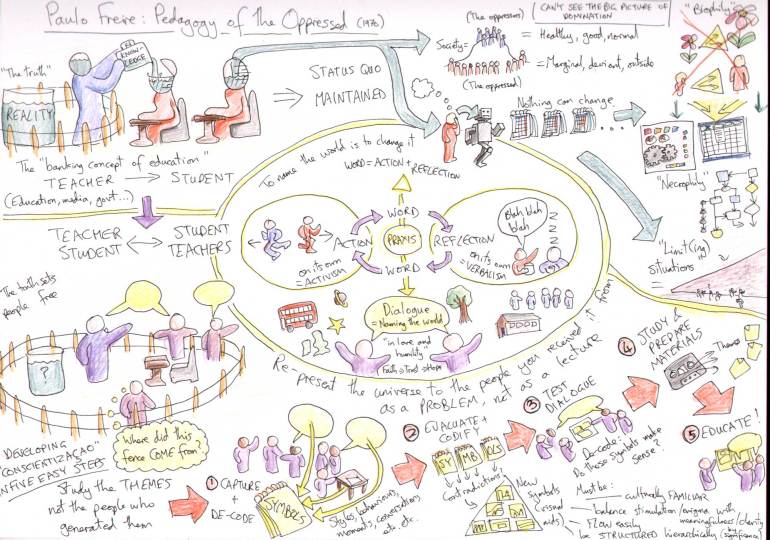 Paulo Freire: Pedagogy of the Oppressed (1970)
"The truth"
KNOW-
LEDGE
REALITY
The "banking concept of education"
TEACHER → STUDENT
(Education, media, govt...)
STATUS QUO
MAINTAINED
(The oppressors)
CAN'T SEE THE BIG PICTURE OF
DOMINATION
Society =
= Healthy, good, normal
= Marginal, deviant, outside
(The oppressed)
Nothing can change
"Biophily"
"Necrophily"
"Limit(ing
situations"
TEACHER STUDENT
STUDENT TEACHERS
The truth sets
people free
?
Where did this
fence COME from?
To name the world is to change it
WORD = ACTION + REFLECTION
WORD
ACTION
PRAXIS
REFLECTION
WORD
on its own
= ACTIVISM
on its own
= VERBALISM
Blah blah
blah
Z
Z
Z
Dialogue
= Naming the world
"in love and
humility"
Faith → Trust → Hope
Re-present the universe to the people you received it from
as a PROBLEM, not as a lecture
DEVELOPING
"CONSCIENTIZAÇAO"
IN FIVE EASY STEPS
Study the THEMES
not the people who
generated them
① CAPTURE
+
DE-CODE
SYMBOLS
Styles, behaviours,
moments, conversations,
etc. etc.
② EVALUATE +
CODIFY
SY MB OLS
Contradictions
New
symbols
(visual
aids)
③ TEST
DIALOGUE
De-code:
Do these symbols make
sense?
④ STUDY &
PREPARE
MATERIALS
Themes
⑤ EDUCATE!
Must be:
— culturally FAMILIAR
— balance stimulation/enigma with
meaningfulness/clarity
— FLOW easily
be STRUCTURED hierarchically (by significance)